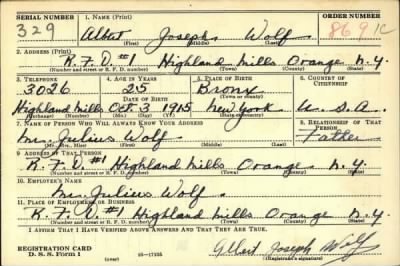 SERIAL NUMBER 1. NAME (Print) ORDER NUMBER
329 Albert Joseph Wolf 8691C
(First) (Middle) (Last)
2. ADDRESS (Print)
R.F.D. #1 Highland Mills Orange N.Y.
(Number and street or R. F. D. number) (Town) (County) (State)
3. TELEPHONE 4. AGE IN YEARS 5. PLACE OF BIRTH 6. COUNTRY OF CITIZENSHIP
3026 25 Bronx
DATE OF BIRTH (Town or county)
Highland Mills Oct 3 1915 New York U.S.A.
(Exchange) (Number) (Mo.) (Day) (Yr.) (State or country)
7. NAME OF PERSON WHO WILL ALWAYS KNOW YOUR ADDRESS 8. RELATIONSHIP OF THAT PERSON
Mr. Julius Wolf Father
(Mr., Mrs., Miss) (First) (Middle) (Last)
9. ADDRESS OF THAT PERSON
R.F.D. #1 Highland Mills Orange N.Y.
(Number and street or R. F. D. number) (Town) (County) (State)
10. EMPLOYER'S NAME
Julius Wolf
11. PLACE OF EMPLOYMENT OR BUSINESS
R.F.D. #1 Highland Mills Orange N.Y.
(Number and street or R. F. D. number) (Town) (County) (State)
I AFFIRM THAT I HAVE VERIFIED ABOVE ANSWERS AND THAT THEY ARE TRUE.
REGISTRATION CARD
D. S. S. Form 1 (over) 16-17105 Albert Joseph Wolf
(Registrant's signature)